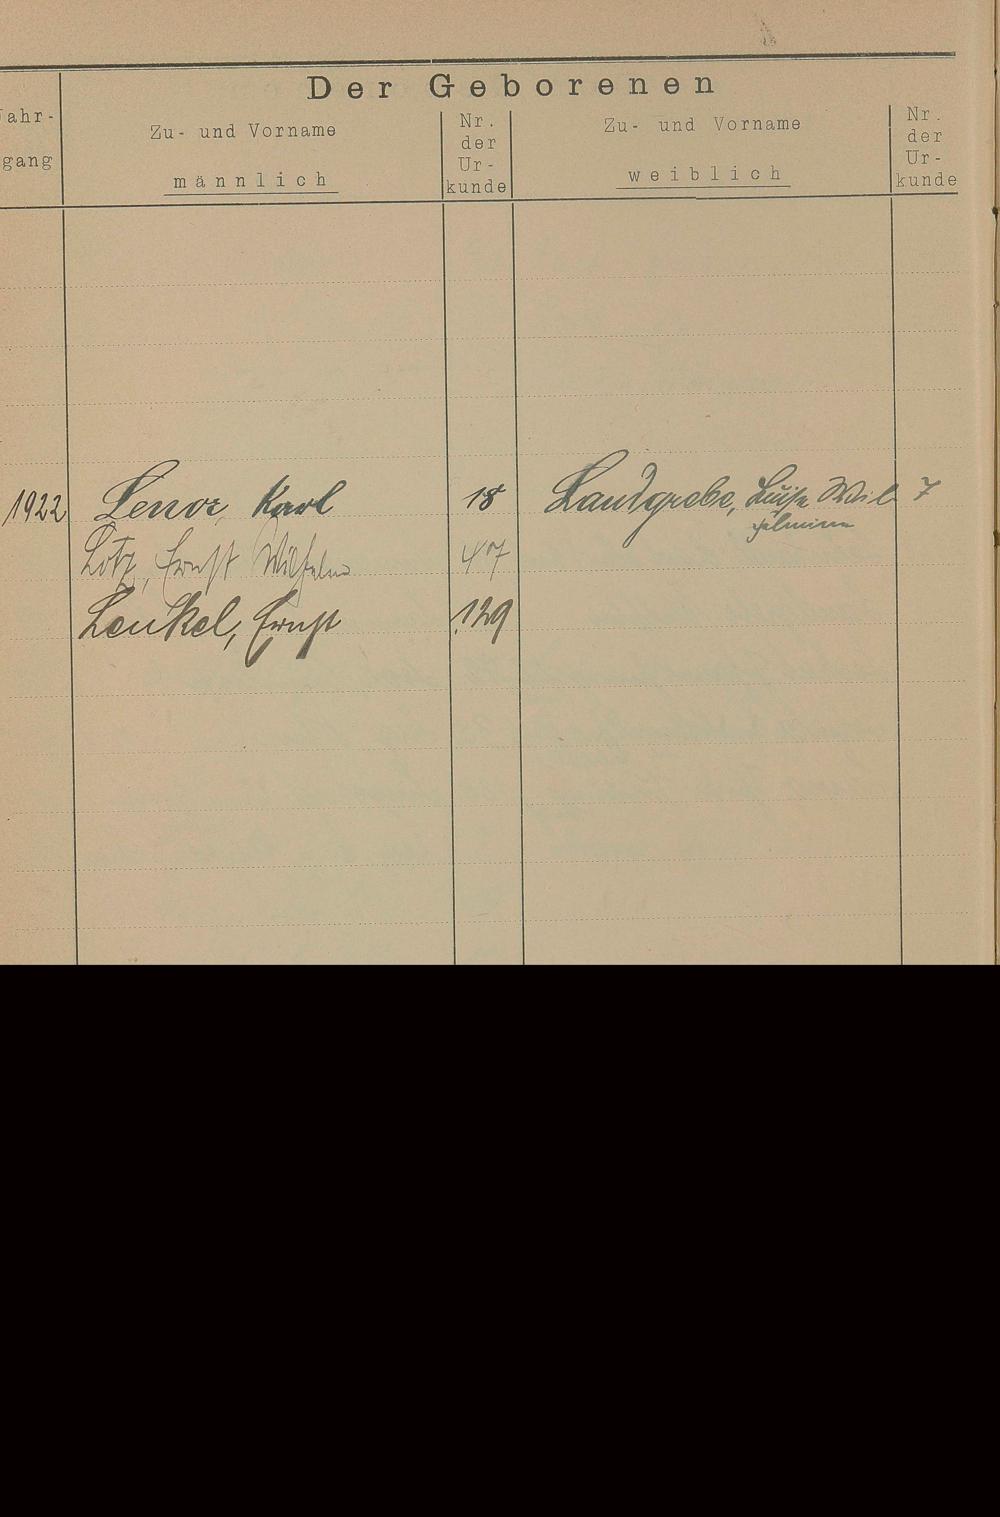 Der Geborenen
Jahr-
gang
Zu- und Vorname
männlich
Nr.
der
Ur-
kunde
Zu- und Vorname
weiblich
Nr.
der
Ur-
kunde
1922 Lenoz, Karl 18 Landgrebe, Luise Wil 7
helmine
Lotz, Ernst Wilhelm 47
Lenkel, Ernst 129